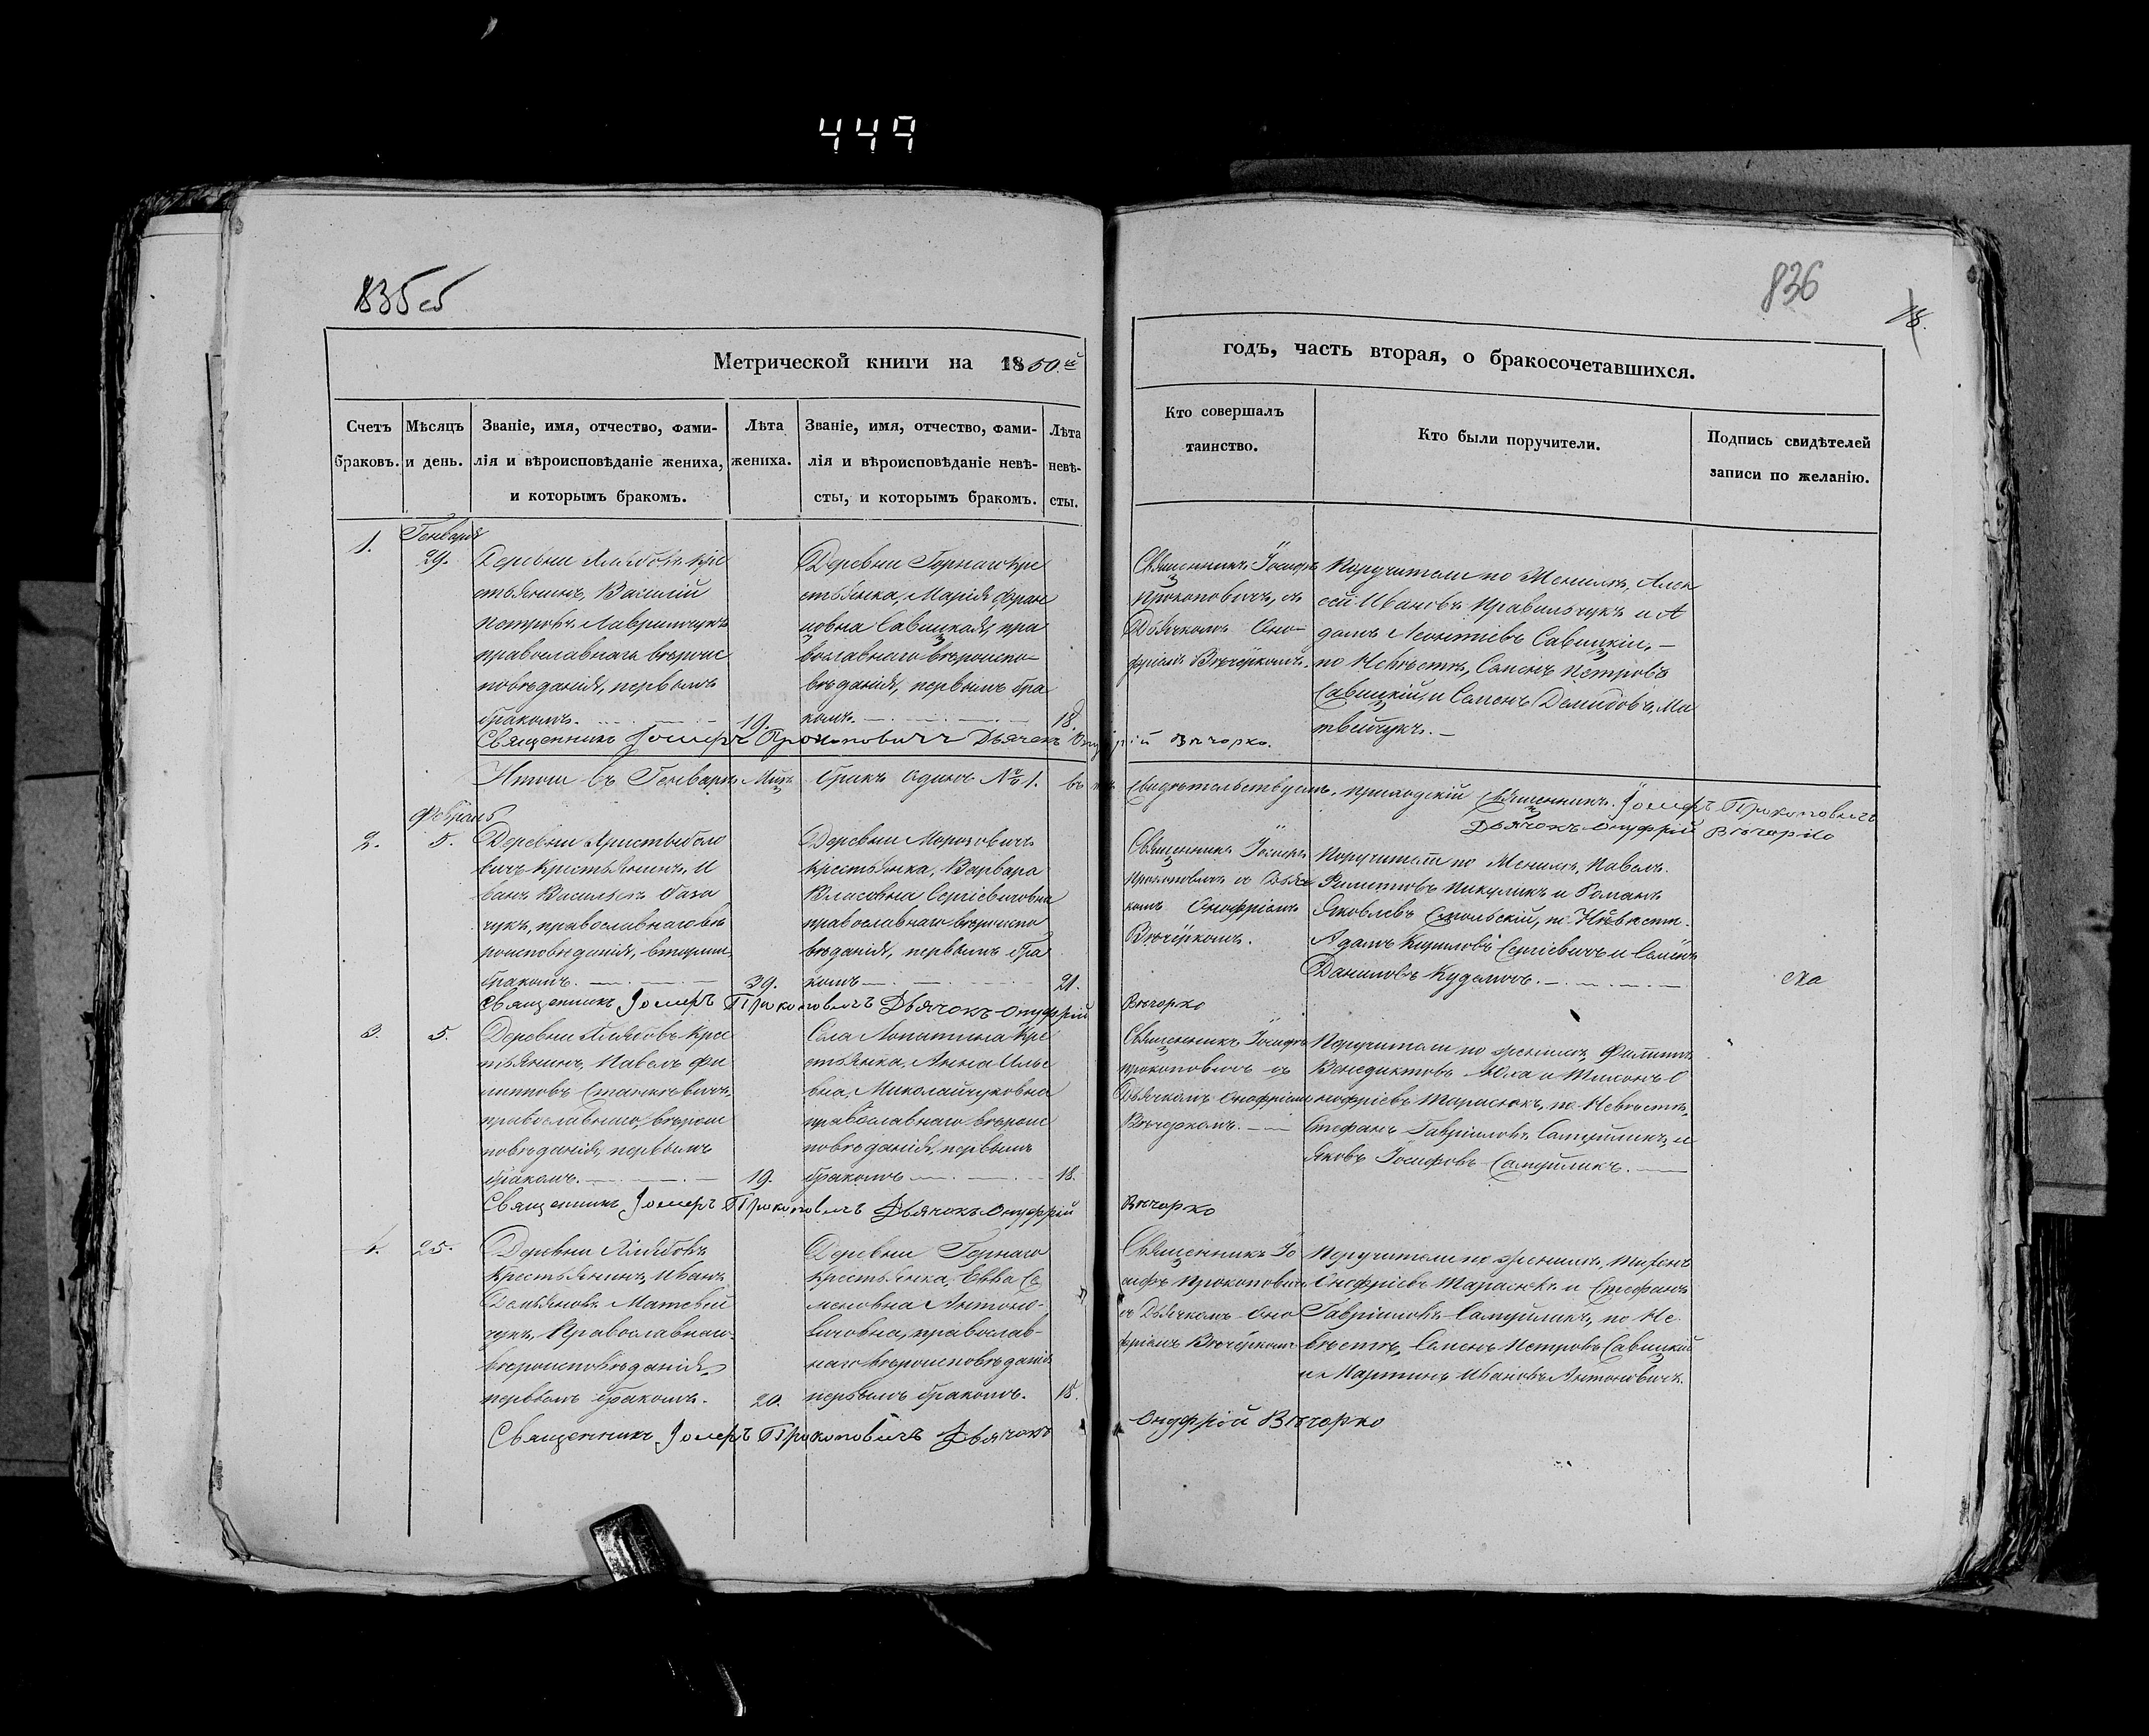 449
835об
836
Метрической книги на 1850й
годъ, часть вторая, о бракосочетавшихся.
Счетъ браковъ.
Мѣсяцъ и день.
Званіе, имя, отчество, фами-
лія и вѣроисповѣданіе жениха,
и которымъ бракомъ.
Лѣта жениха.
Званіе, имя, отчество, фами-
лія и вѣроисповѣданіе невѣ-
сты, и которымъ бракомъ.
Лѣта невѣ-
сты.
Кто совершалъ
таинство.
Кто были поручители.
Подпись свидѣтелей
записи по желанію.
1.
Генваря
29.
Деревни кре
стьянинъ, Василій
Петровъ Лавринчукъ
православнаго вѣроис
повѣданія, первымъ
бракомъ.
19.
Деревни Горнаго кре
стьянка, Марія Фран
цовна Савицкая, пра
вославнаго вѣроиспо-
вѣданія, первымъ бра
комъ.
18.
Священникъ Іосифъ
Прокоповичъ, съ
Дьячкомъ Оно-
фріемъ Вѣчёркомъ.
Поручители по Женихѣ, Алек
сѣй Ивановъ Правильчукъ и А
дамъ Леонтіевъ Савицкіи,
по Невѣстѣ, Семенъ Петровъ
Савицкій, и Семенъ Демидовъ, Ма
твейчукъ.
Священникъ Іосифъ Прокоповичъ Дьячекъ Онуфрій Вѣчорко.
Итого въ Генварѣ Мцѣ бракъ одинъ № 1. въ чемъ свидѣтельствуемъ, приходскій Священникъ Іосифъ Прокоповичъ
Дьячокъ Онуфрій Вѣчорко
Февраль
2.
5.
Деревни Аристыболо
вичъ крестьянинъ, И
ванъ Васильевъ База
чукъ, православнаго вѣ
роисповѣданія, вторымъ
бракомъ.
39.
Деревни Морозовичъ
крестьянка, Варвара
Власовна Сергіевичовна
православнаго вѣроиспо
вѣданія, первымъ бра
комъ
21.
Священникъ Іосифъ
Прокоповичъ съ Дьяч
комъ Онофріемъ
Вѣчёркомъ.
Поручители по Женихѣ, Павелъ
Филиповъ Никулинъ и Романъ
Яковлевъ Смольскій, по Невѣстѣ
Адамъ Кириловъ Сергіевичъ и Семенъ
Даниловъ
Священникъ Іосифъ Прокоповичъ Дьячокъ Онуфрій Вѣчорко
3.
5.
Деревни крес
тьянинъ, Павелъ Фи
липповъ Станкевичъ,
православнаго вѣроис
повѣданія, первымъ
бракомъ.
19.
Села Лопатина кре
стьянка, Анна Илье
вна, Миколайчуковна
православнаго вѣроис
повѣданія, первымъ
бракомъ
18.
Священникъ Іосифъ
Прокоповичъ съ
Дьячкомъ Онофріемъ
Вѣчеркомъ.
Поручители по Женихѣ, Филиппъ
Венедиктовъ Юха и Тихонъ О
нофріевъ Тарасюкъ, по Невѣстѣ,
Стефанъ Гавріиловъ Самуйликъ, и
Яковъ Іосифовъ Самуйликъ.
Священникъ Іосифъ Прокоповичъ Дьячокъ Онуфрій Вѣчорко
4.
25.
Деревни
Крестьянинъ, Иванъ
Демьяновъ Матвей
чукъ, Православнаго
вѣроисповѣданія,
первымъ бракомъ.
20.
Деревни Горнаго
Крестьянка, Евва Се
меновна Антоно-
вичовна, православ-
наго вѣроисповѣданія
первымъ бракомъ.
18.
Священникъ Іо
сифъ Прокоповичъ
съ Дьячкомъ Оно
фріемъ Вѣчёркомъ
Поручители по Женихѣ, Тихонъ
Онофріевъ Тарасюкъ и Стефанъ
Гавріиловъ Самуйликъ, по Не
вѣстѣ, Семенъ Петровъ Савицкій
и Мартинъ Ивановъ Антоновичъ.
Священникъ Іосифъ Прокоповичъ Дьячокъ Онуфрій Вѣчорко